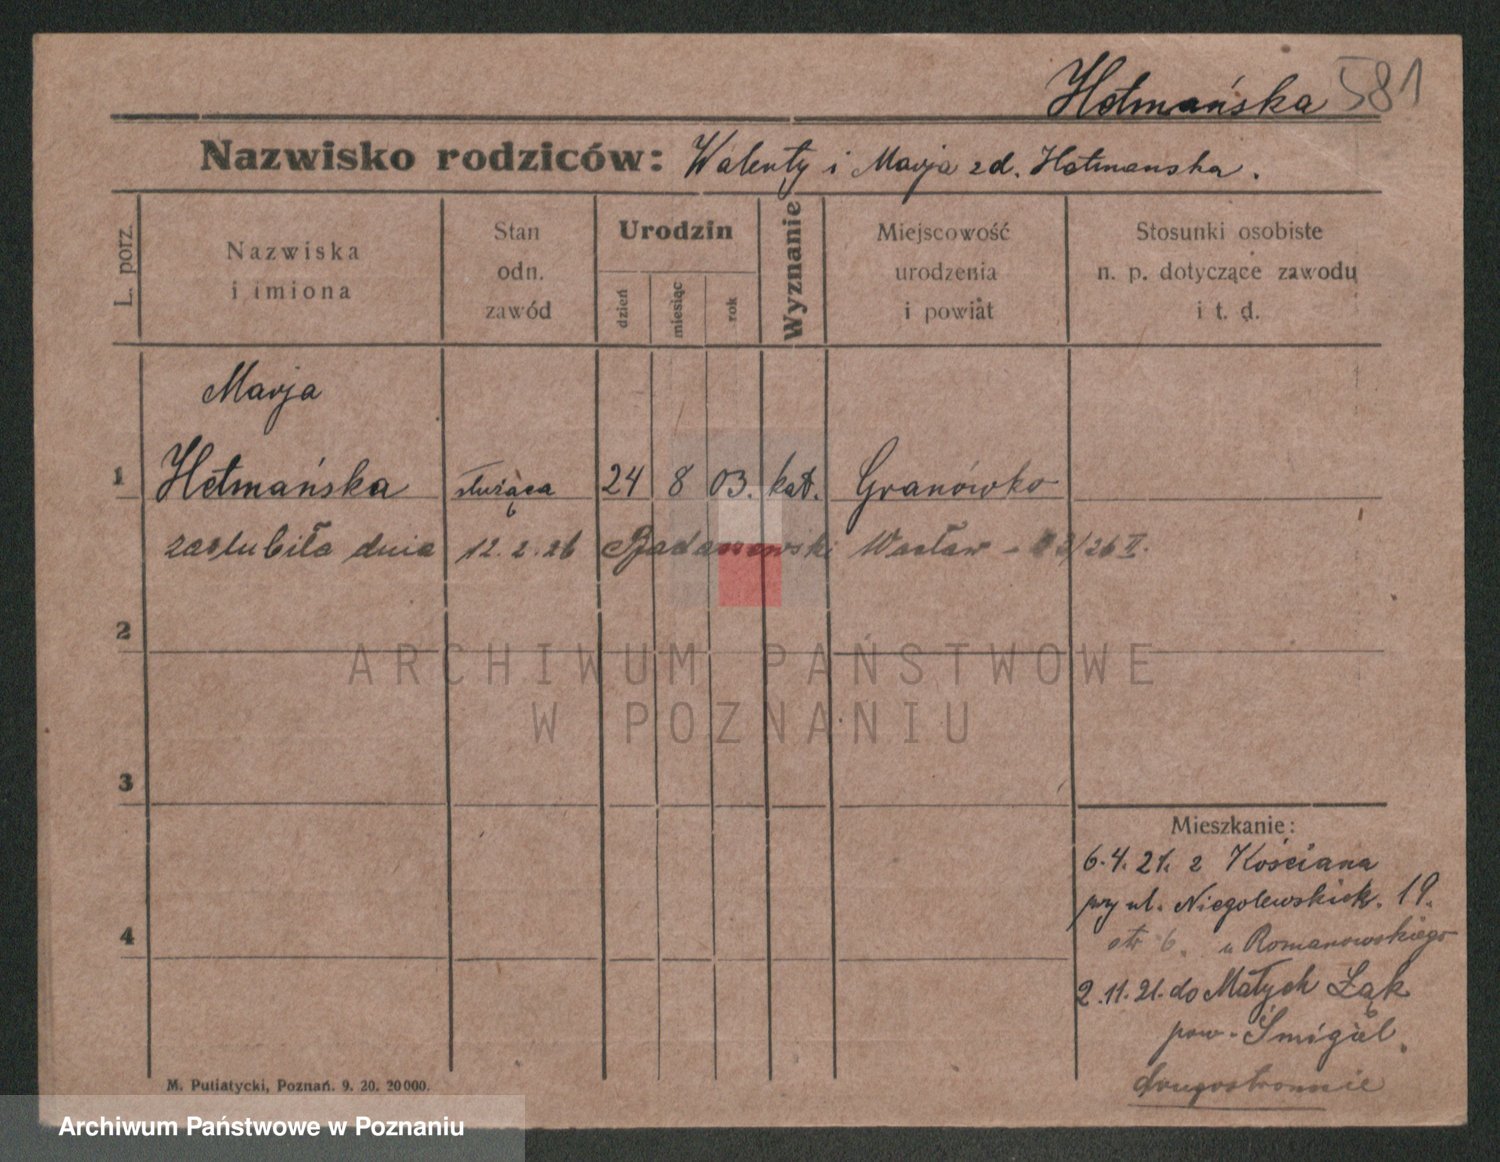 Hetmańska 581
Nazwisko rodziców: Walenty i Marja zd. Hetmanska.
L. porz.
Nazwiska
i imiona
Stan
odn.
zawód
Urodzin
dzień
miesiąc
rok
Wyznanie
Miejscowość
urodzenia
i powiat
Stosunki osobiste
n. p. dotyczące zawodu
i t. d.
Marja
1 Hetmańska służąca 24 8 03. kat. Granówko
zaślubiła dnia 12.2.26 Badaszewski Wacław - /26 II.
2
3
4
ARCHIWUM PAŃSTWOWE
W POZNANIU
Mieszkanie:
6.4.21. z Kościana
przy ul. Niegolewskich. 19.
str 6. u Romanowskiego
2.11.21. do Małych Łąk
pow. Śmigiel.
drugostronnie
M. Putiatycki, Poznań. 9. 20. 20000.
Archiwum Państwowe w Poznaniu